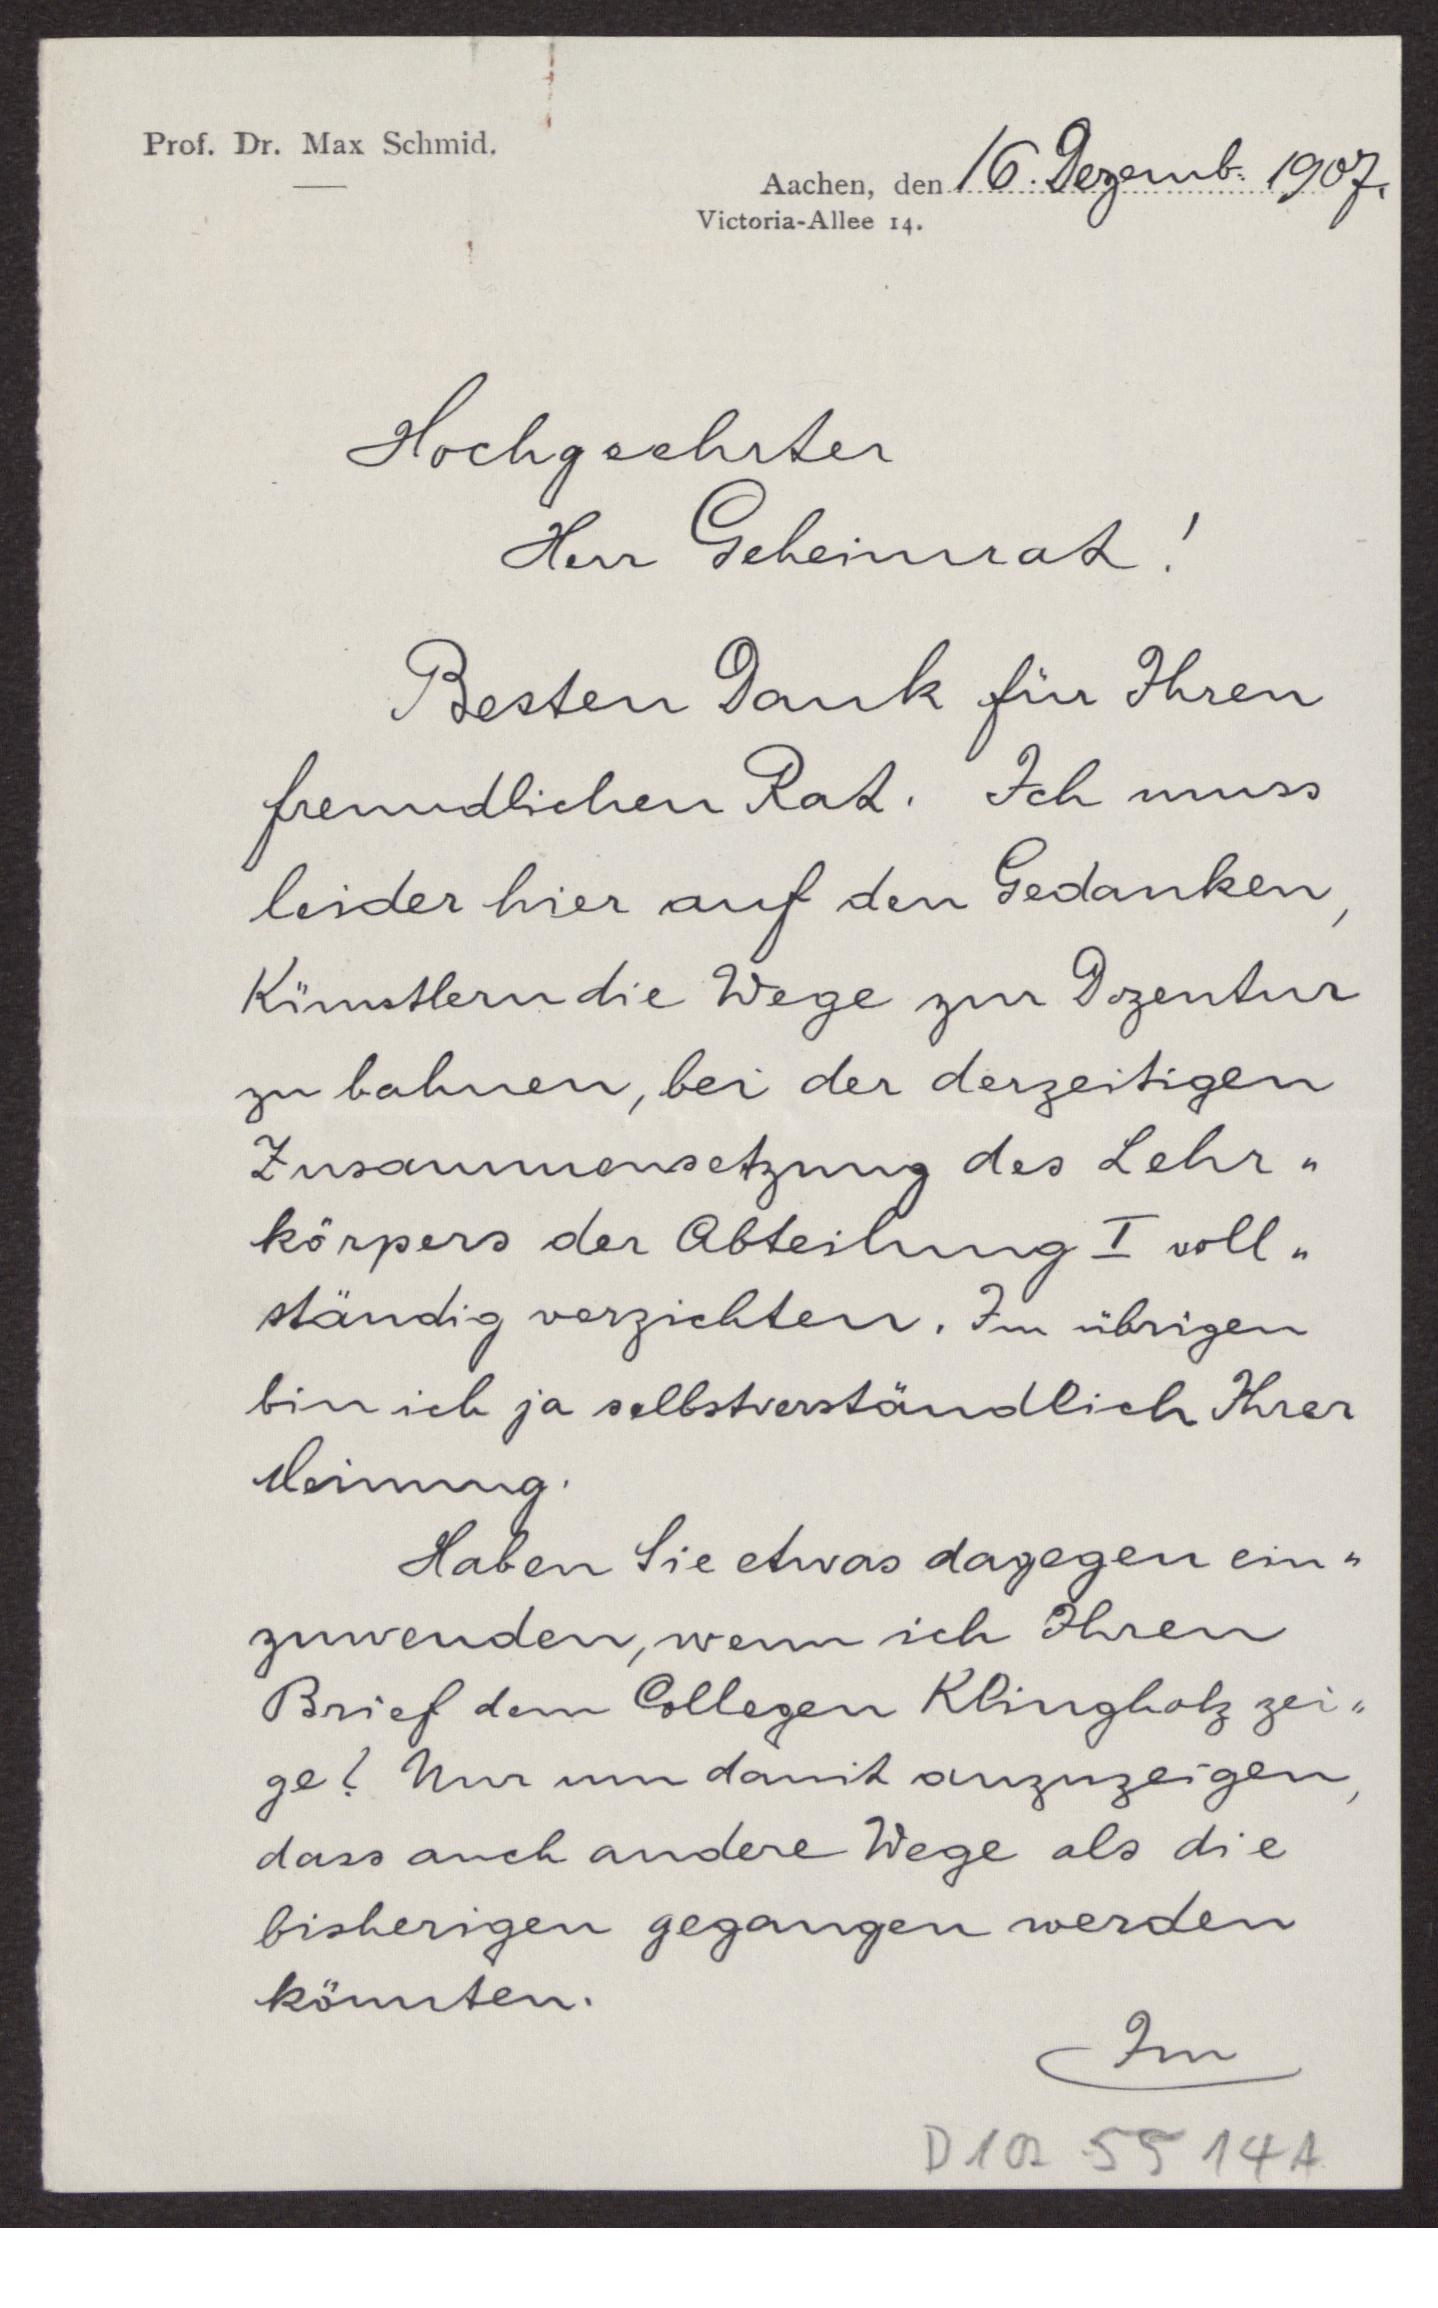 Prof. Dr. Max Schmid.
Aachen, den 16. Dezemb. 1907.
Victoria-Allee 14.
Hochgeehrter
Herr Geheimrat!
Besten Dank für Ihren
freundlichen Rat. Ich muss
leider hier auf den Gedanken,
Künstlern die Wege zur Dozentur
zu bahnen, bei der derzeitigen
Zusammensetzung des Lehr"
körpers der Abteilung I voll"
ständig verzichten. Im übrigen
bin ich ja selbstverständlich Ihrer
Meinung.
Haben Sie etwas dagegen ein"
zuwenden, wenn ich Ihren
Brief dem Collegen Klingholz zei"
ge? Nur um damit anzuzeigen,
dass auch andere Wege als die
bisherigen gegangen werden
könnten.
Im
D 102 55 14A